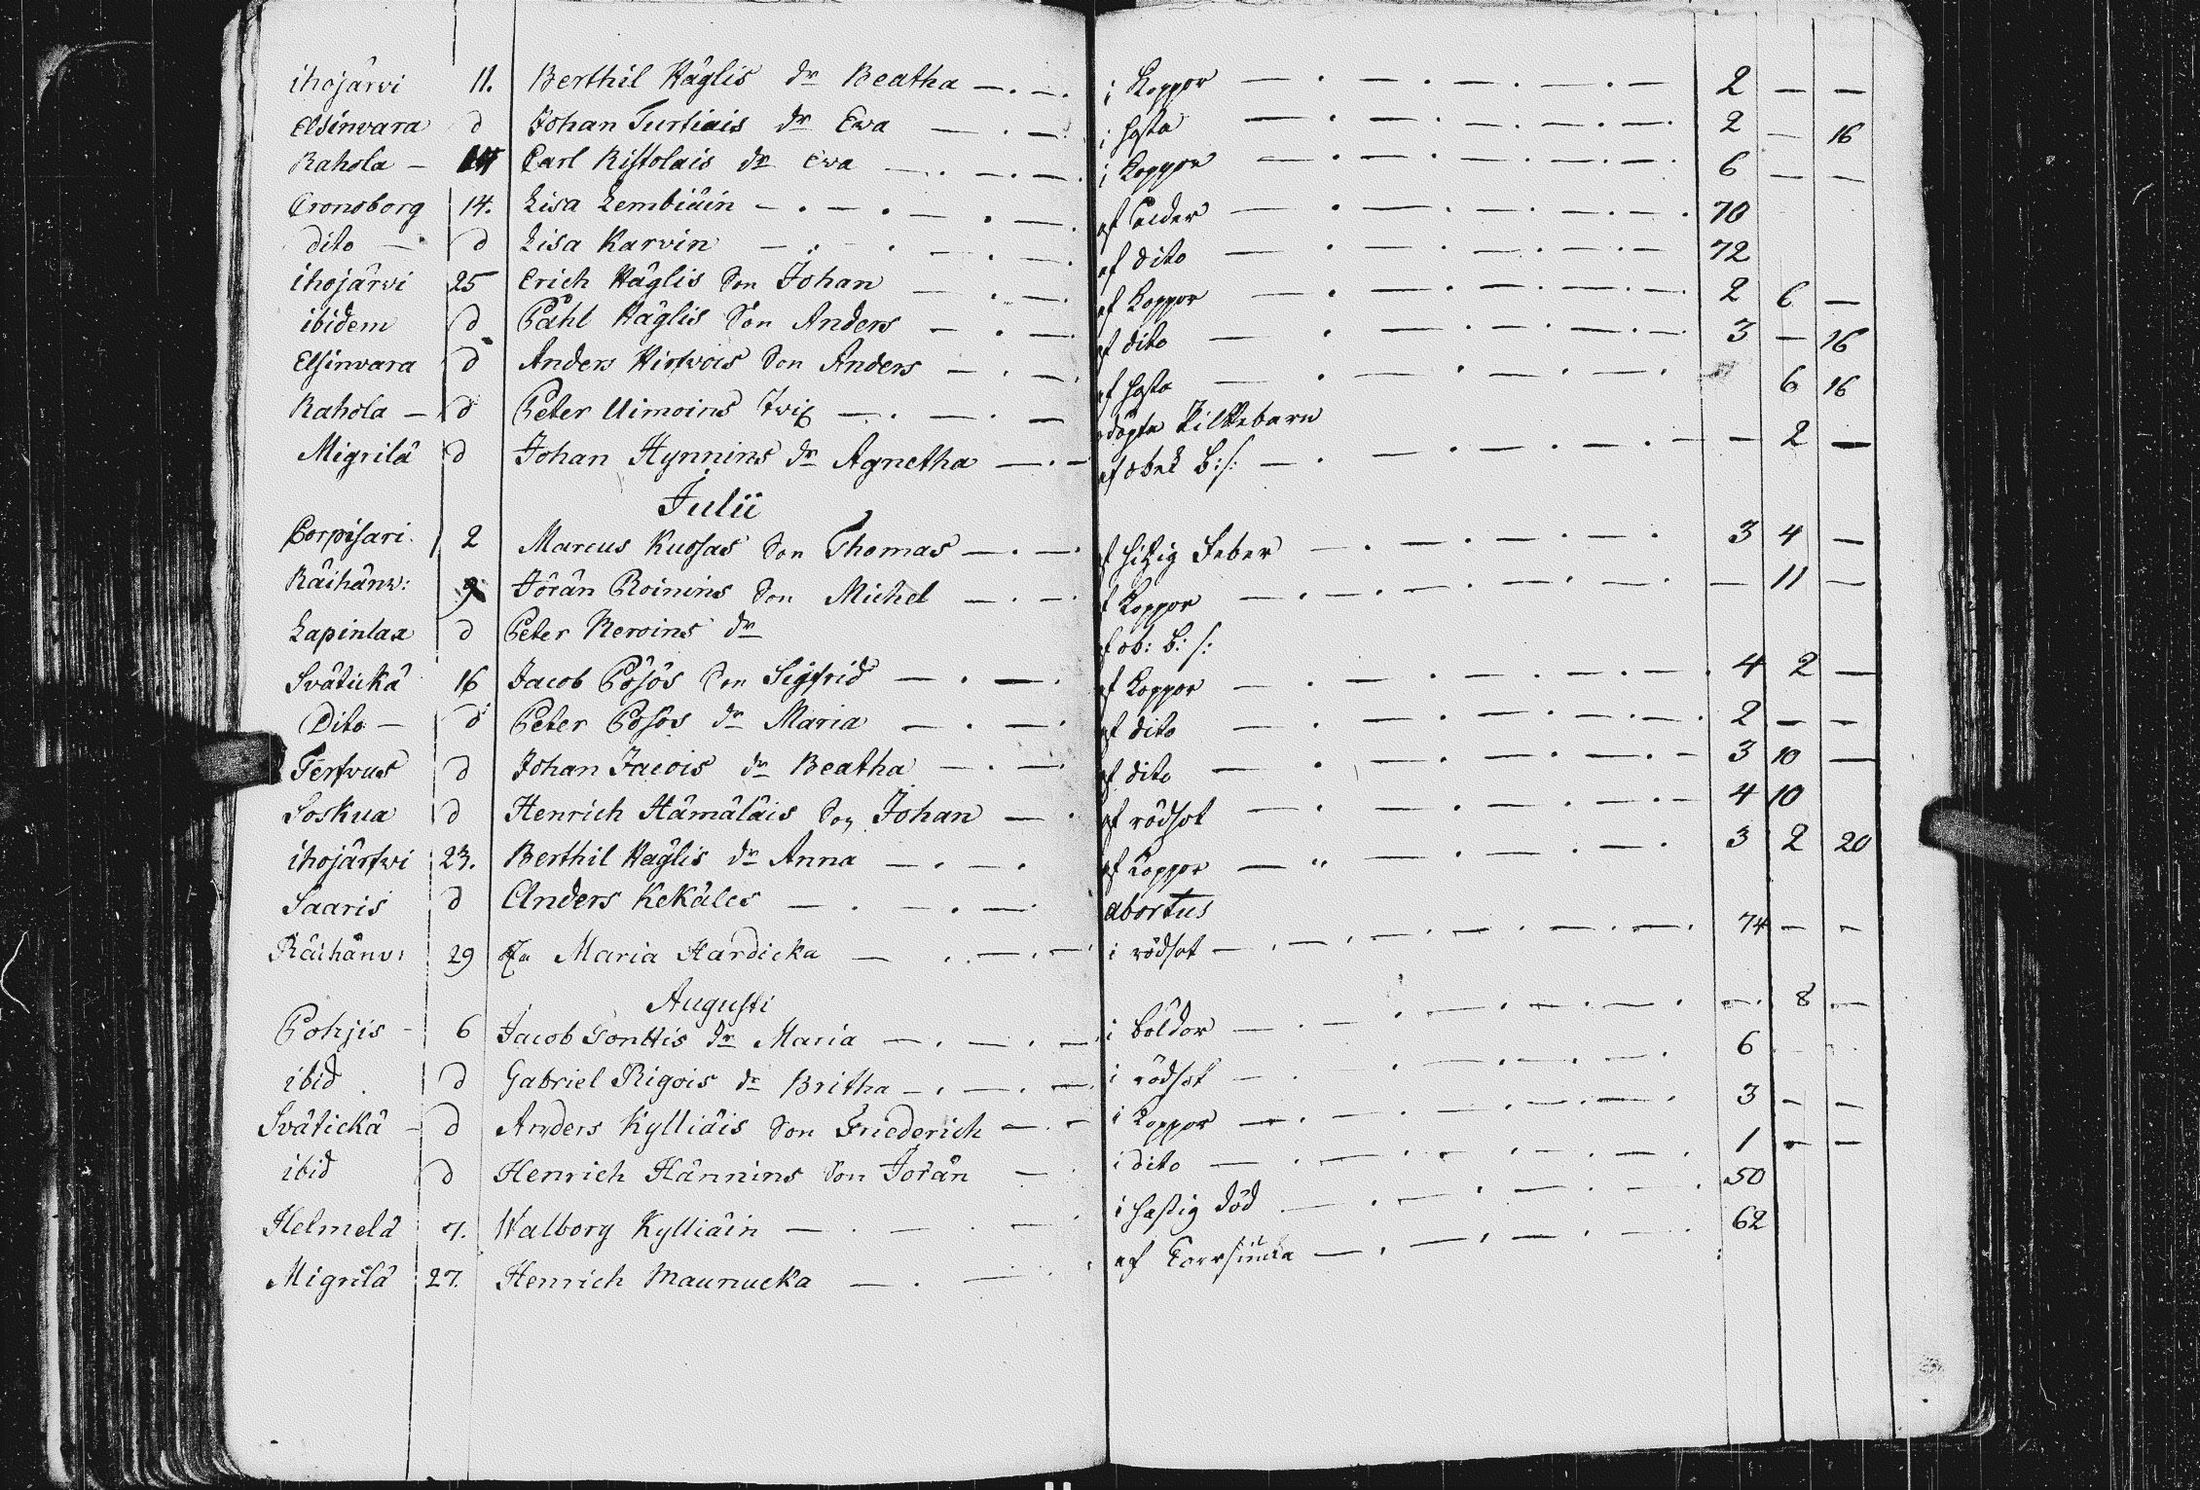 ihojärvi 11. Berthil Häglis dr Beatha —.—. i Koppor — . — . — . — . — 2 — —
Elsinvara d Johan Turtiais dr Ewa — . — i hosta — . — . — . — . — 2 — 16
Rahola — Carl Ristolais dr Ewa — . — . — i Koppor — . — . — . — . — 6 — —
Cronoborg 14. Lisa Lembiäin — . — . — . — af — . — . — . — . — 70
dito — d Lisa Karvin — . — . — . — af dito — . — . — . — . — 72
ihojärvi 25 Erich Häglis Son Johan — . — af Koppor — . — . — . — . — 2 6 —
ibidem d Påhl Häglis Son Anders — . — af dito — . — . — . — . — 3 — 16
Elsinvara d Anders Hirfvois Son Anders — . — . af hosta — . — . — . — . 6 16
Rahola — d Peter Uimoins — . — . — odöpta
Migrilä d Johan Hynnins dr Agnetha — . — af obek b:s: — . — . — . — . — — 2 —
Julii
Corpisari. 2 Marcus Kuosas Son Thomas — . — . af hitzig Feber — . — . — . — . 3 4 —
Räihänv: 9 Jöran Roinins Son Michel — . — . af Koppor — . — . — . — . — 11 —
Lapinlax d Peter Reroins dr af ob: b: s:
Svätickä 16 Jacob Pösös Son Sigfrid — . — . af Koppor — . — . — . — . 4 2 —
Dito — d Peter Posös dr Maria — . — . af dito — . — . — . — . 2 — —
Terfvus d Johan Jacois dr Beatha — . — af dito — . — . — . — . — 3 10 —
Soskua d Henrich Hämäläis Son Johan — . af rödsot — . — . — . — . — 4 10
ihojärfvi 23. Berthil Häglis dr Anna — . — . af Koppor — " — . — . — . — 3 2 20
Saaris d Anders Kekäles — . — . — . abortus
Räihänv: 29 Maria Hardicka — . — . — i rödsot — . — . — . — . — . 74 — —
Augusti
Pohjis - 6 Jacob Tonttis dr Maria — . — . — i böldor — . — . — . — . — . 8 . —
ibid d Gabriel Rigois dr Britha — . — . — i rödsot — . — . — . — . — 6
Svätickä - d Anders Kylliäis Son Friederich — . — i Koppor — . — . — . — . — . 3 — —
ibid d Henrich Hännins Son Jöran — i dito — . — . — . — . 1 — —
Helmelä 7. Walborg Kylliäin — . — . — . i hastig död . — . — . — . — . 50
Migrilä 27. Henrich Maunucka — . — . af — . — . — . — . 62